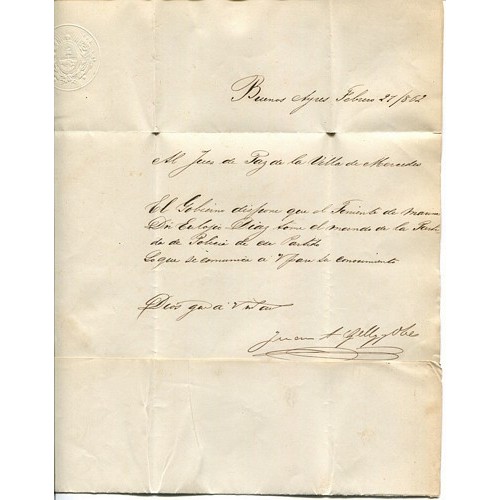 Buenos Ayres Febrero 27/862
Al Juez de Paz de la Villa de Mercedes
El Gobierno dispone que el Teniente de marina
Dn Eulogio Diaz tome el mando de la Parti-
da de Policia de su Partido
Lo que se comunica a V para su conocimiento
Dios gue a V
Juan A Gelly y Obes